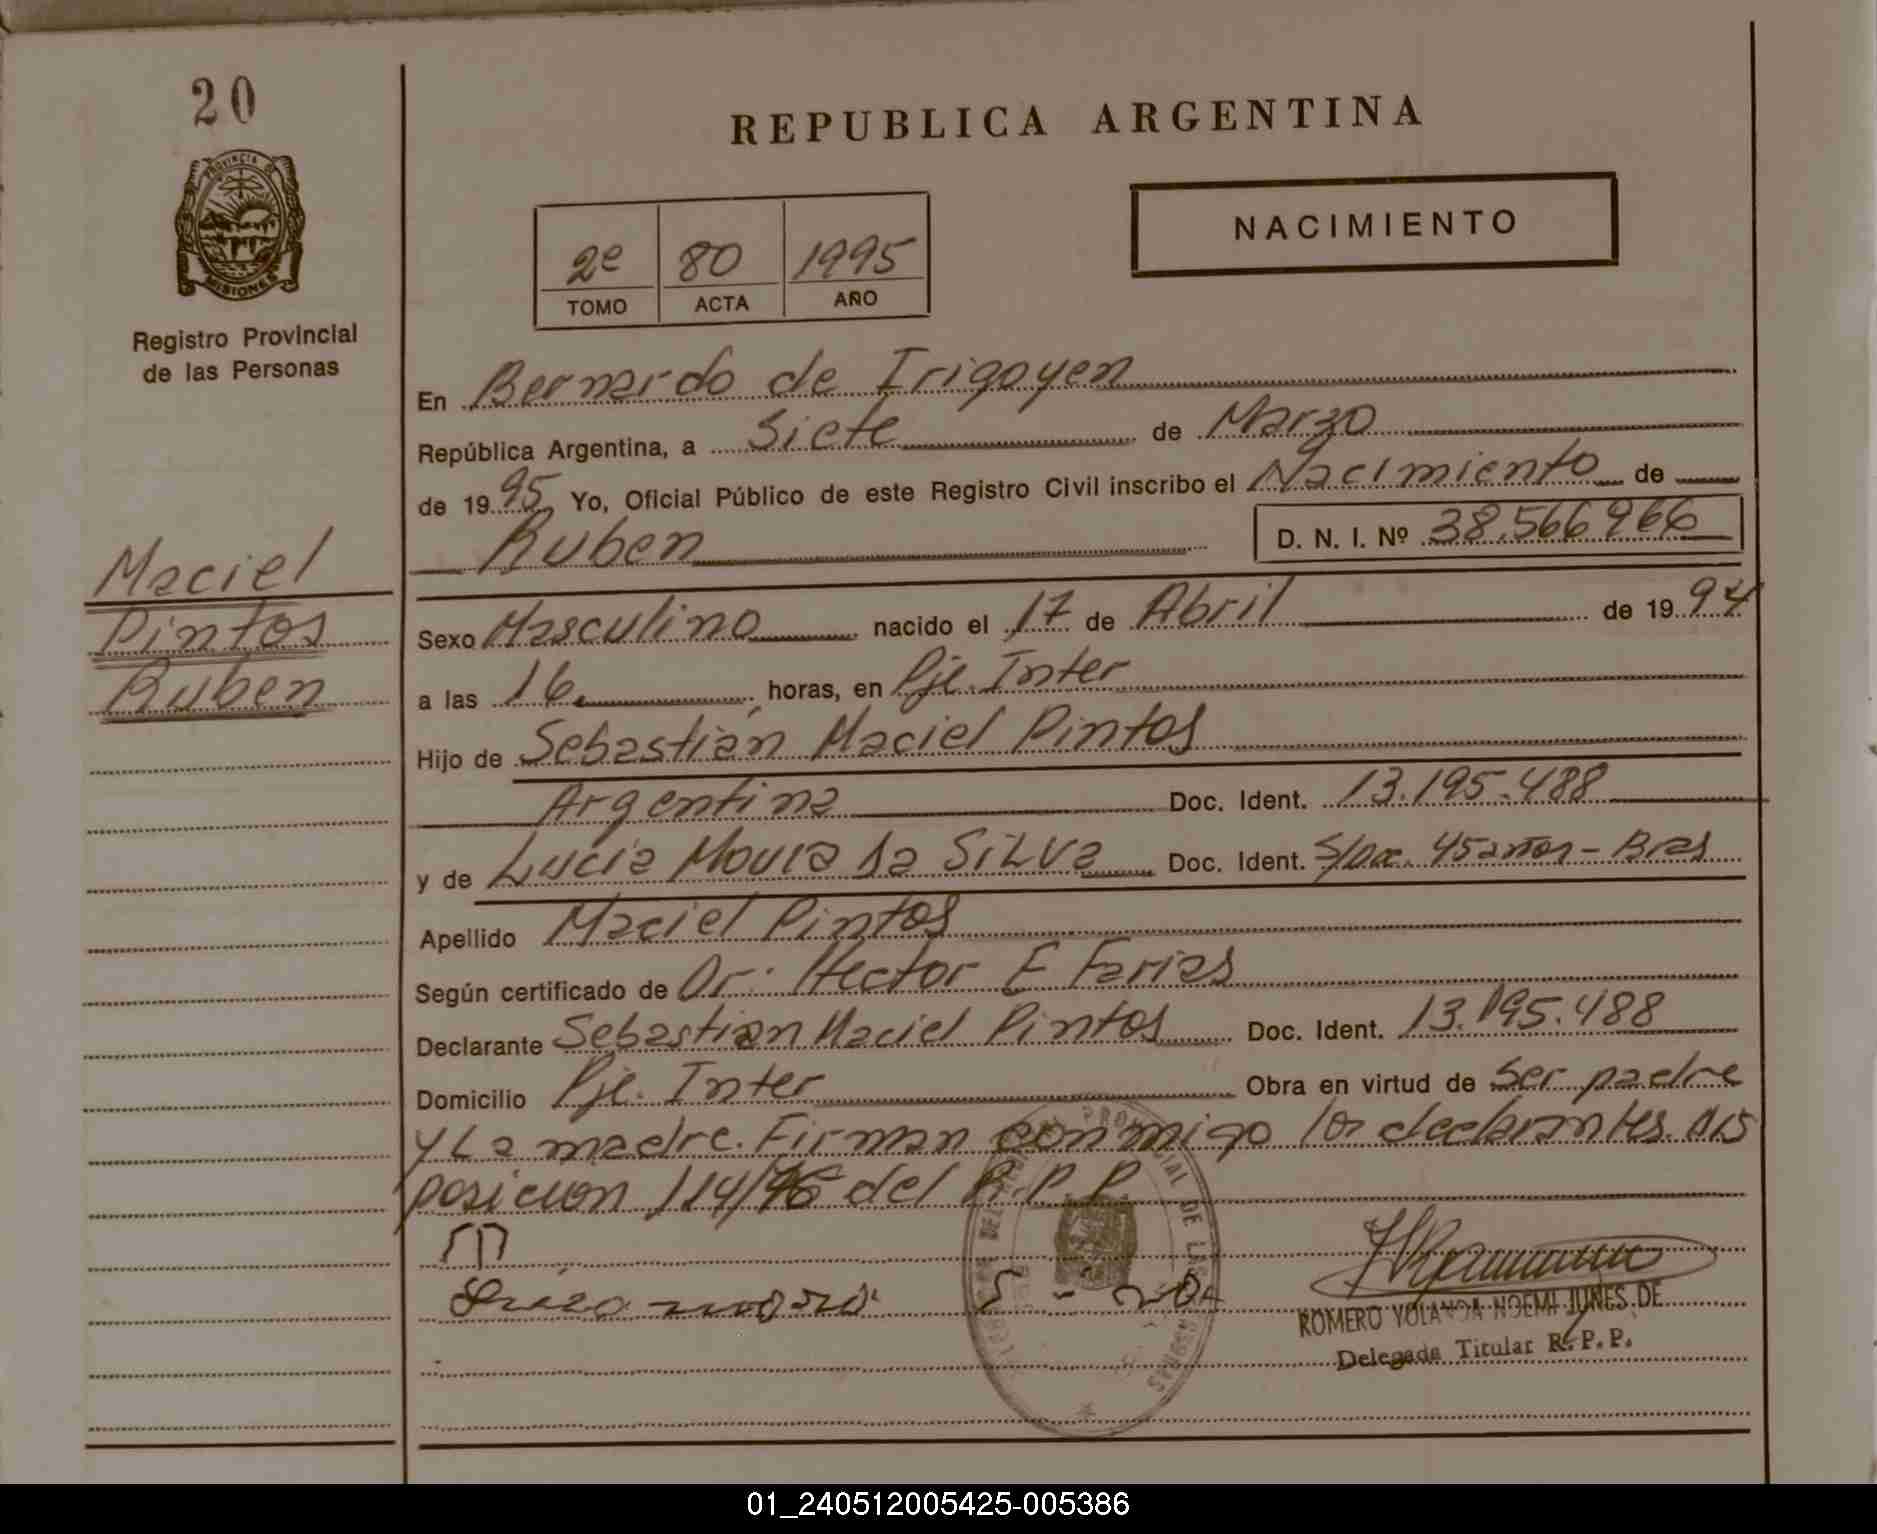 20
PROVINCIA DE
MISIONES
Registro Provincial
de las Personas
Maciel
Pintos
Ruben
REPUBLICA ARGENTINA
2º 80 1995
TOMO ACTA AÑO
NACIMIENTO
En Bernardo de Irigoyen
República Argentina, a Siete de Marzo
de 1995 Yo, Oficial Público de este Registro Civil inscribo el Nacimiento de
Ruben D. N. I. Nº 38.566966
Sexo Masculino nacido el 17 de Abril de 1994
a las 16 horas, en Pje. Inter
Hijo de Sebastián Maciel Pintos
Argentina Doc. Ident. 13.195.488
y de Lucia Moura da Silva Doc. Ident. S/Doc. 45 años - Bras
Apellido Maciel Pintos
Según certificado de Dr. Hector E Farias
Declarante Sebastian Maciel Pintos Doc. Ident. 13.195.488
Domicilio Pje. Inter Obra en virtud de Ser padre
y La madre. Firman conmigo los declarantes. Dis
posicion 114/96 del R.P.P
ROMERO YOLANDA NOEMI JUNES DE
Delegada Titular R.P.P.
01_240512005425-005386